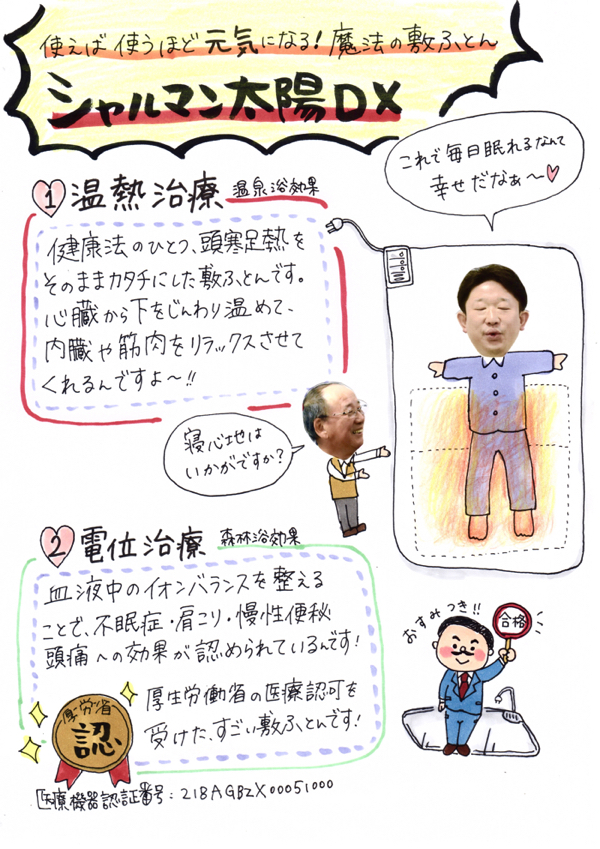 使えば使うほど元気になる!魔法の敷ふとん
シャルマン太陽DX
これで毎日眠れるなんて
幸せだなぁ〜♡
1 温熱治療 温泉浴効果
健康法のひとつ、頭寒足熱を
そのままカタチにした敷ふとんです。
心臓から下をじんわり温めて、
内臓や筋肉をリラックスさせて
くれるんですよ〜!!
寝心地は
いかがですか?
2 電位治療 森林浴効果
血液中のイオンバランスを整える
ことで、不眠症・肩こり・慢性便秘
頭痛への効果が認められているんです!
厚生労働省の医療認可を
受けた、すごい敷ふとんです!
厚労省
認
おすみつき!!
合格
医療機器認証番号:218AGBZX00051000